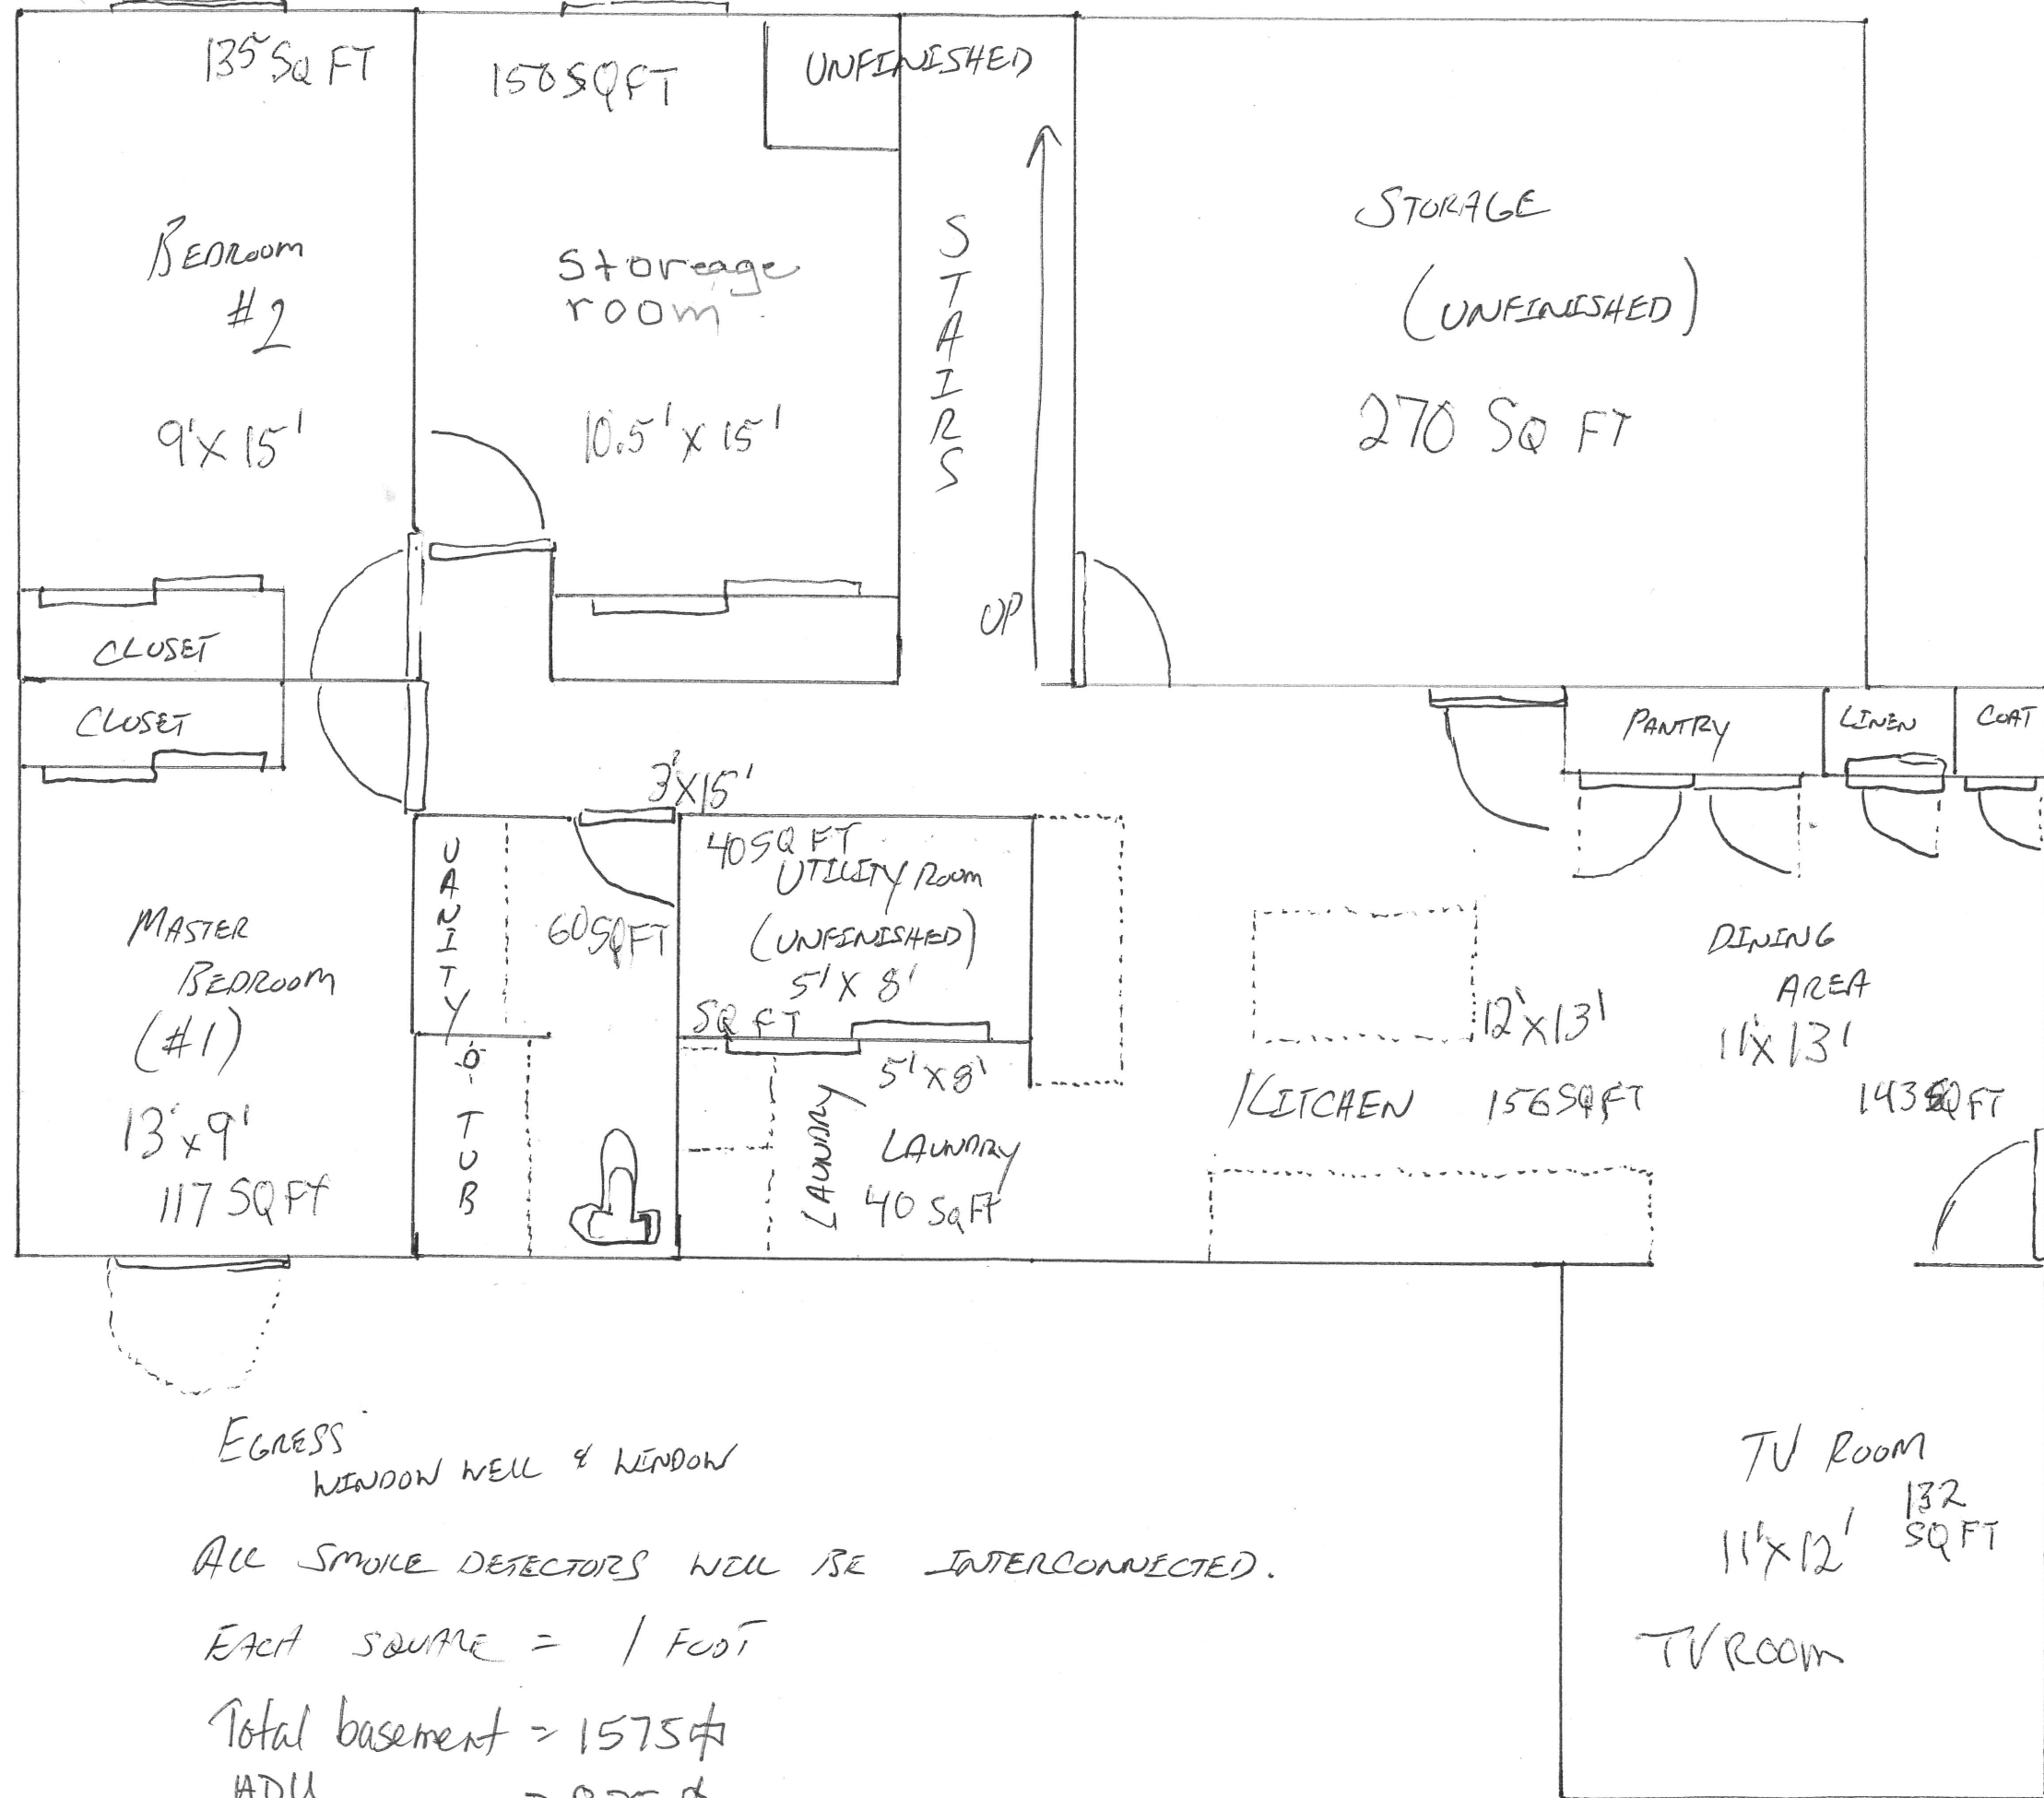 135 SQ FT
150 SQ FT
UNFINISHED
BEDROOM
#2
9' X 15'
Storeage
room
10.5' X 15'
STAIRS
UP
STORAGE
(UNFINISHED)
270 SQ FT
CLOSET
CLOSET
PANTRY
LINEN
COAT
3' X 15'
VANITY
60 SQ FT
40 SQ FT
UTILITY ROOM
(UNFINISHED)
5' X 8'
SQ FT
MASTER
BEDROOM
(#1)
13' X 9'
117 SQ FT
TUB
5' X 8'
LAUNDRY
LAUNDRY
40 SQ FT
12' X 13'
KITCHEN 156 SQ FT
DINING
AREA
11' X 13'
143 SQ FT
EGRESS
WINDOW WELL & WINDOW
ALL SMOKE DETECTORS WILL BE INTERCONNECTED.
EACH SQUARE = 1 FOOT
Total basement = 1575
ADU
TV ROOM
132
SQ FT
11' X 12'
TV ROOM